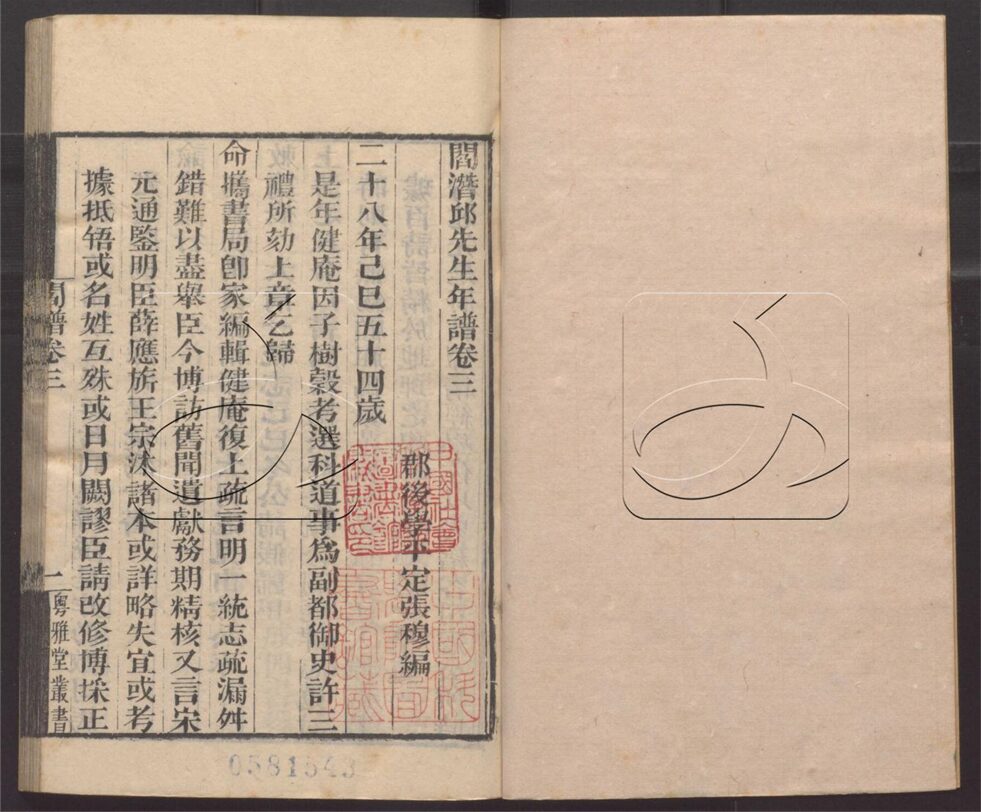 閻潛邱先生年譜卷三
郡後學平定張穆編
二十八年己巳五十四歲
是年健庵因子樹穀考選科道事爲副都御史許三
禮所劾上章乞歸
命攜書局卽家編輯健庵復上疏言明一統志疏漏舛
錯難以盡舉臣今博訪舊聞遺獻務期精核又言宋
元通鑒明臣薛應旂王宗沐諸本或詳略失宜或考
據抵牾或名姓互殊或日月闕謬臣請改修博採正
閻譜卷三
一
粵雅堂叢書
0581543